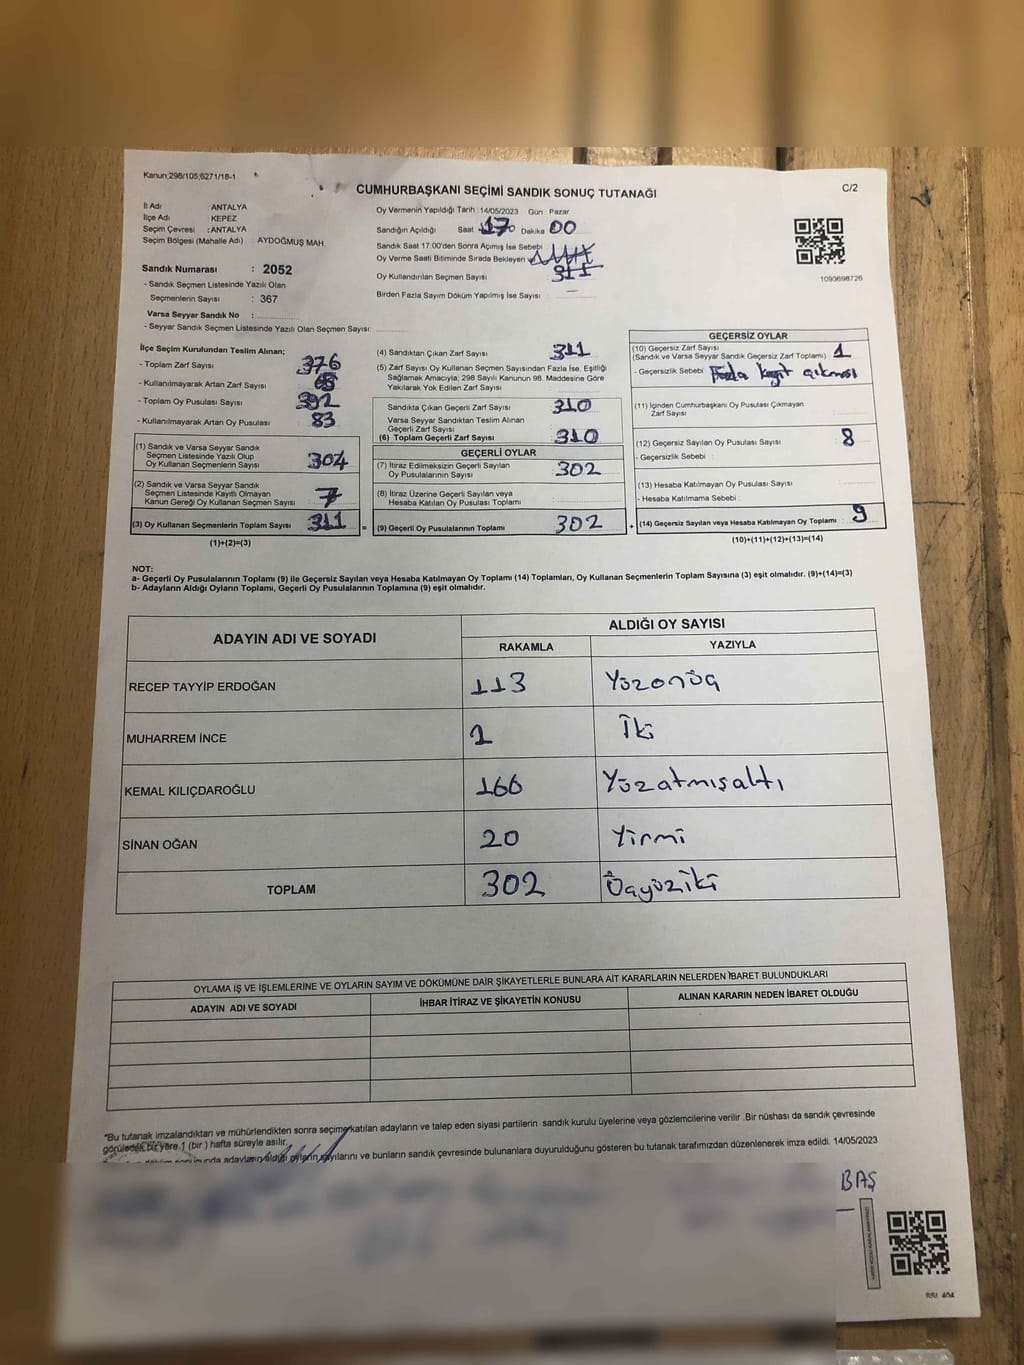 Kanun;298/105;6271/18-1
CUMHURBAŞKANI SEÇİMİ SANDIK SONUÇ TUTANAĞI
C/2
İl Adı : ANTALYA
İlçe Adı : KEPEZ
Seçim Çevresi : ANTALYA
Seçim Bölgesi (Mahalle Adı) : AYDOĞMUŞ MAH.
Sandık Numarası : 2052
- Sandık Seçmen Listesinde Yazılı Olan
Seçmenlerin Sayısı : 367
Varsa Seyyar Sandık No :
- Seyyar Sandık Seçmen Listesinde Yazılı Olan Seçmen Sayısı:
Oy Vermenin Yapıldığı Tarih :14/05/2023 Gün : Pazar
Sandığın Açıldığı Saat 17 Dakika 00
Sandık Saat 17:00'den Sonra Açımış İse Sebebi
Oy Verme Saati Bitiminde Sırada Bekleyen
Oy Kullandırılan Seçmen Sayısı 311
Birden Fazla Sayım Döküm Yapılmış İse Sayısı : —
1093698726
İlçe Seçim Kurulundan Teslim Alınan;
- Toplam Zarf Sayısı 376
- Kullanılmayarak Artan Zarf Sayısı
- Toplam Oy Pusulası Sayısı 392
- Kullanılmayarak Artan Oy Pusulası 83
(1) Sandık ve Varsa Seyyar Sandık
Seçmen Listesinde Yazılı Olup
Oy Kullanan Seçmenlerin Sayısı 304
(2) Sandık ve Varsa Seyyar Sandık
Seçmen Listesinde Kayıtlı Olmayan
Kanun Gereği Oy Kullanan Seçmen Sayısı 7
(3) Oy Kullanan Seçmenlerin Toplam Sayısı 311 =
(1)+(2)=(3)
(4) Sandıktan Çıkan Zarf Sayısı 311
(5) Zarf Sayısı Oy Kullanan Seçmen Sayısından Fazla İse, Eşitliği
Sağlamak Amacıyla; 298 Sayılı Kanunun 98. Maddesine Göre
Yakılarak Yok Edilen Zarf Sayısı
Sandıkta Çıkan Geçerli Zarf Sayısı 310
Varsa Seyyar Sandıktan Teslim Alınan
Geçerli Zarf Sayısı
(6) Toplam Geçerli Zarf Sayısı 310
GEÇERLİ OYLAR
(7) İtiraz Edilmeksizin Geçerli Sayılan
Oy Pusulalarının Sayısı 302
(8) İtiraz Üzerine Geçerli Sayılan veya
Hesaba Katılan Oy Pusulası Toplamı
(9) Geçerli Oy Pusulalarının Toplamı 302 +
GEÇERSİZ OYLAR
(10) Geçersiz Zarf Sayısı
(Sandık ve Varsa Seyyar Sandık Geçersiz Zarf Toplamı) 1
- Geçersizlik Sebebi Fazla kağıt çıkması
(11) İçinden Cumhurbaşkanı Oy Pusulası Çıkmayan
Zarf Sayısı
(12) Geçersiz Sayılan Oy Pusulası Sayısı 8
- Geçersizlik Sebebi :
(13) Hesaba Katılmayan Oy Pusulası Sayısı
- Hesaba Katılmama Sebebi :
(14) Geçersiz Sayılan veya Hesaba Katılmayan Oy Toplamı 9
(10)+(11)+(12)+(13)=(14)
NOT:
a- Geçerli Oy Pusulalarının Toplamı (9) ile Geçersiz Sayılan veya Hesaba Katılmayan Oy Toplamı (14) Toplamları, Oy Kullanan Seçmenlerin Toplam Sayısına (3) eşit olmalıdır. (9)+(14)=(3)
b- Adayların Aldığı Oyların Toplamı, Geçerli Oy Pusulalarının Toplamına (9) eşit olmalıdır.
ADAYIN ADI VE SOYADI
ALDIĞI OY SAYISI
RAKAMLA YAZIYLA
RECEP TAYYİP ERDOĞAN 113 Yüzonüç
MUHARREM İNCE İki
KEMAL KILIÇDAROĞLU 166 Yüzatmışaltı
SİNAN OĞAN 20 Yirmi
TOPLAM 302 Üçyüziki
OYLAMA İŞ VE İŞLEMLERİNE VE OYLARIN SAYIM VE DÖKÜMÜNE DAİR ŞİKAYETLERLE BUNLARA AİT KARARLARIN NELERDEN İBARET BULUNDUKLARI
ADAYIN ADI VE SOYADI İHBAR İTİRAZ VE ŞİKAYETİN KONUSU ALINAN KARARIN NEDEN İBARET OLDUĞU
*Bu tutanak imzalandıktan ve mühürlendikten sonra seçime katılan adayların ve talep eden siyasi partilerin sandık kurulu üyelerine veya gözlemcilerine verilir .Bir nüshası da sandık çevresinde
görülecek bir yere 1 (bir ) hafta süreyle asılır.
adayların aldığı oyların sayılarını ve bunların sandık çevresinde bulunanlara duyurulduğunu gösteren bu tutanak tarafımızdan düzenlenerek imza edildi. 14/05/2023
BAŞ